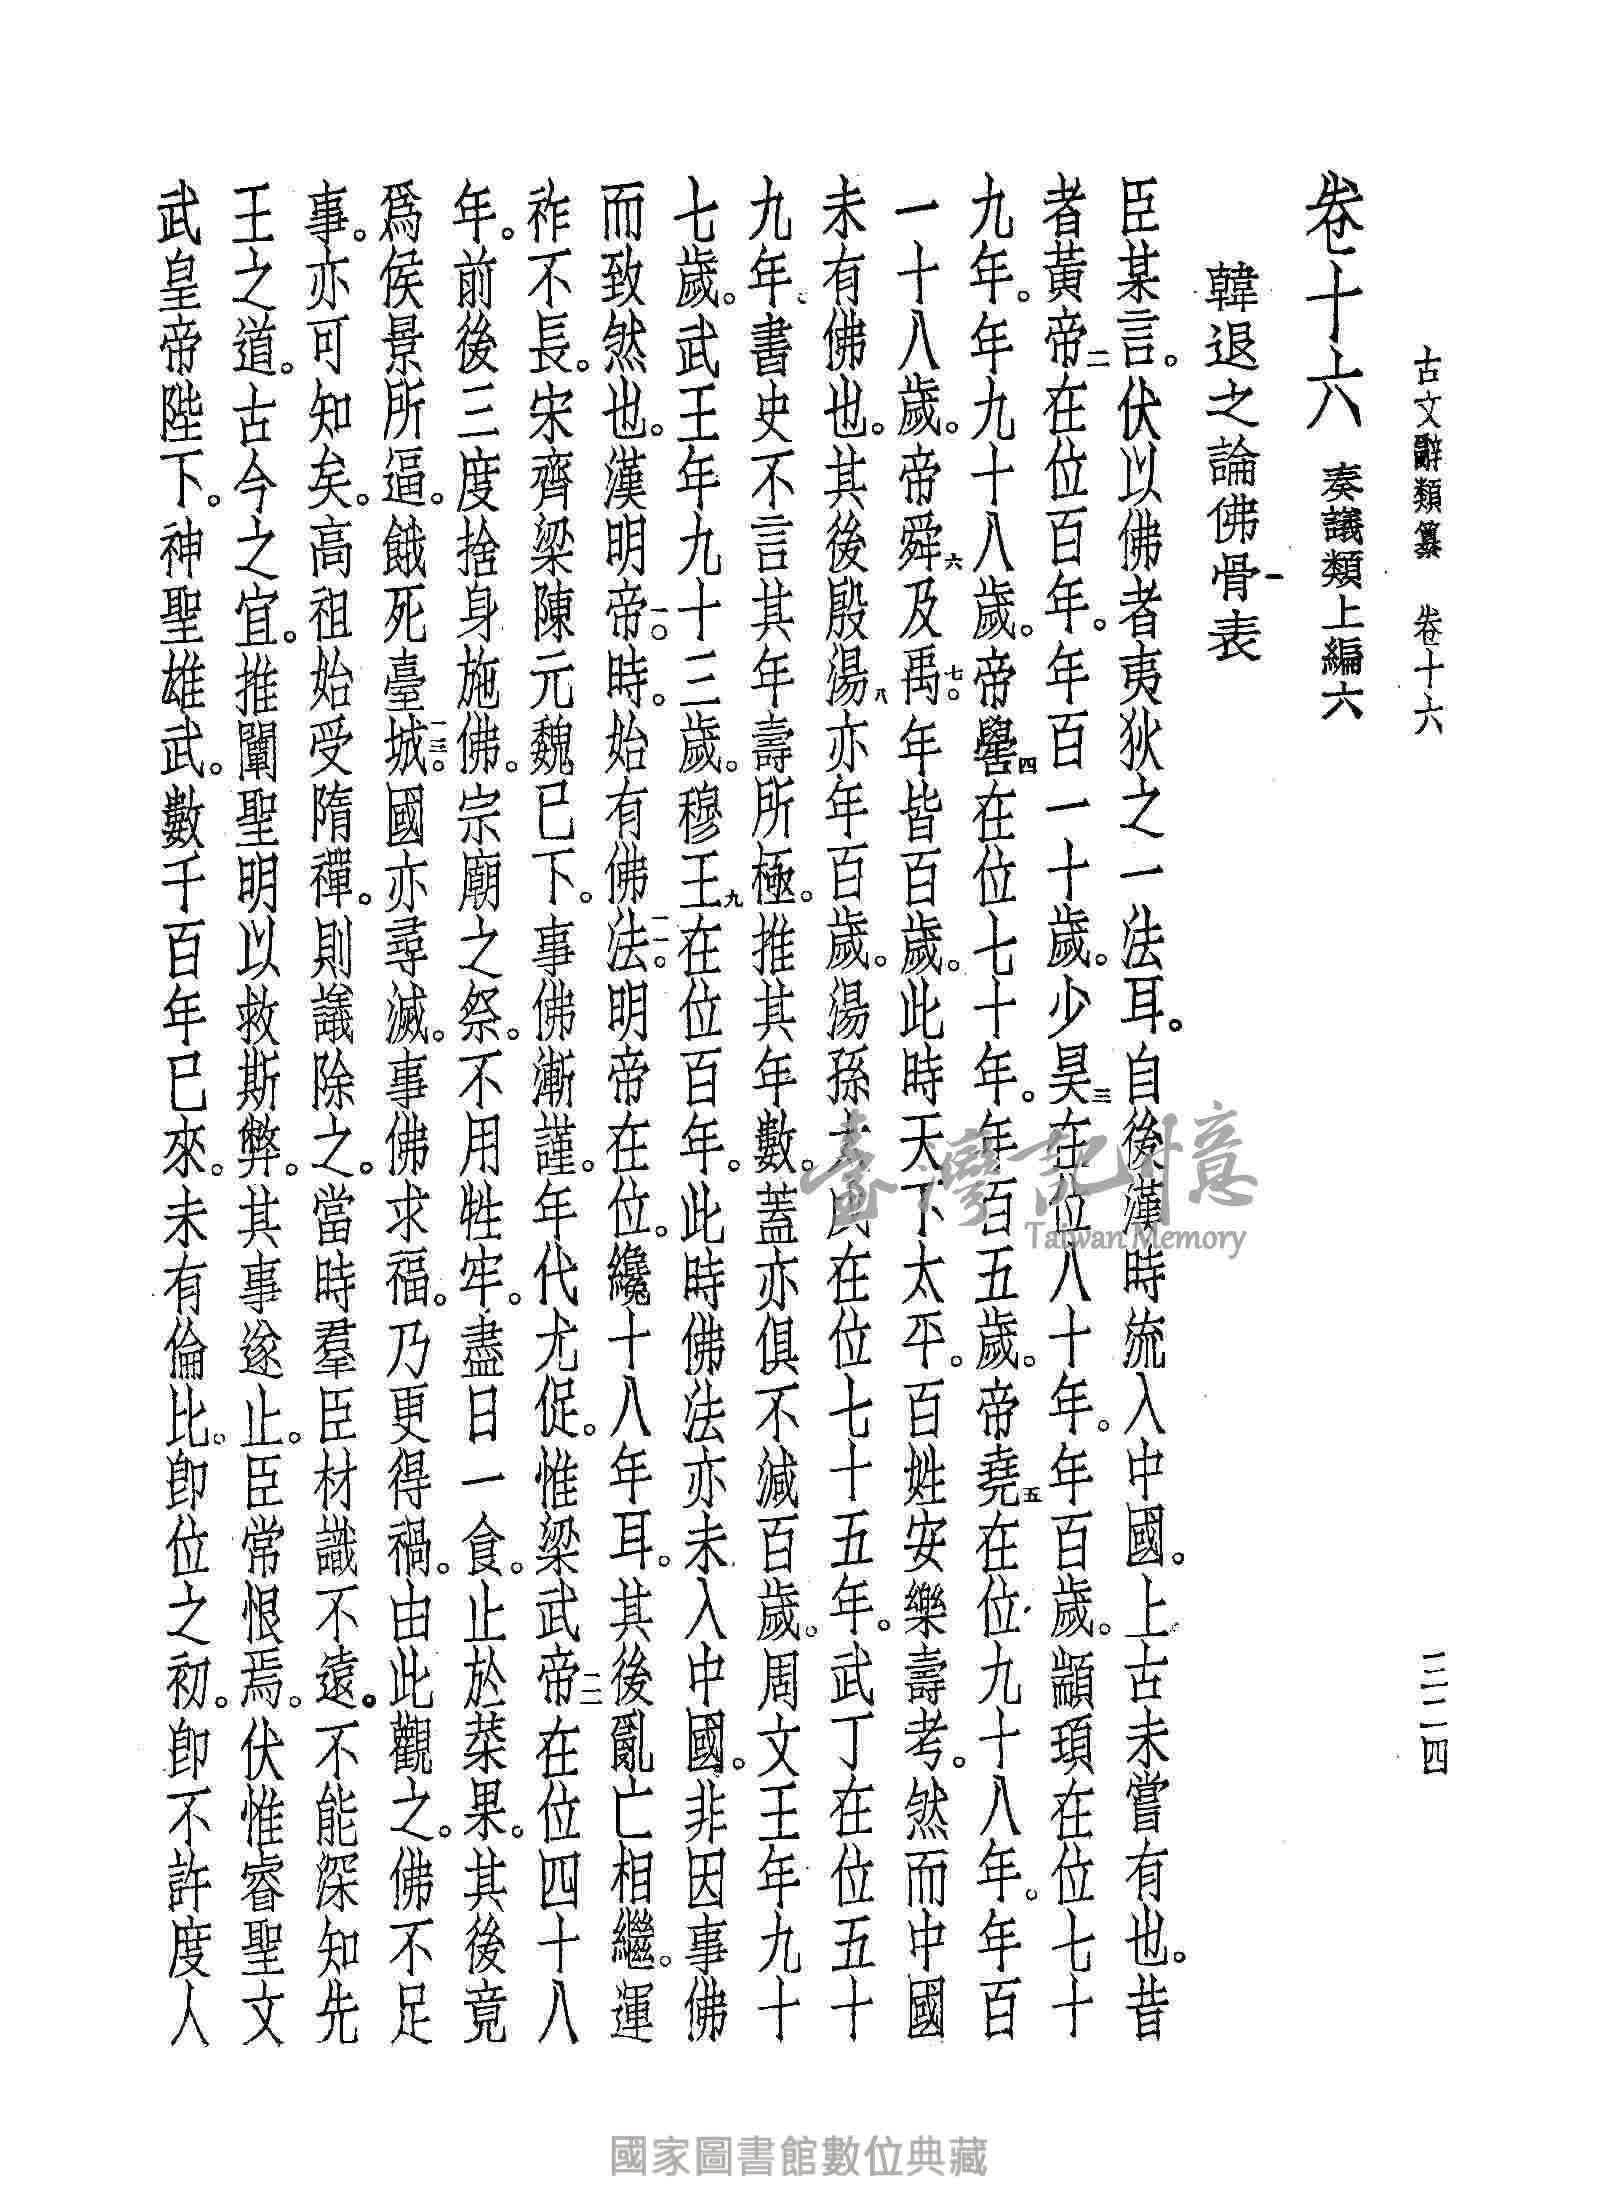 古文辭類纂　卷十六　三二四
卷十六　奏議類上編六
韓退之論佛骨表一
臣某言。伏以佛者夷狄之一法耳。自後漢時流入中國。上古未嘗有也。昔
者黃帝二在位百年。年百一十歲。少昊三在位八十年。年百歲。顓頊在位七十
九年。年九十八歲。帝嚳四在位七十年。年百五歲。帝堯五在位九十八年。年百
一十八歲。帝舜六及禹七。年皆百歲。此時天下太平。百姓安樂壽考。然而中國
未有佛也。其後殷湯八亦年百歲。湯孫太戊在位七十五年。武丁在位五十
九年。書史不言其年壽所極。推其年數。蓋亦俱不減百歲。周文王年九十
七歲。武王年九十三歲。穆王九在位百年。此時佛法亦未入中國。非因事佛
而致然也。漢明帝一〇時。始有佛法一一。明帝在位。纔十八年耳。其後亂亡相繼。運
祚不長。宋齊梁陳元魏已下。事佛漸謹。年代尤促。惟梁武帝一二在位四十八
年。前後三度捨身施佛。宗廟之祭。不用牲牢。盡日一食。止於菜果。其後竟
爲侯景所逼。餓死臺城一三。國亦尋滅。事佛求福。乃更得禍。由此觀之。佛不足
事。亦可知矣。高祖始受隋禪。則議除之。當時羣臣材識不遠。不能深知先
王之道。古今之宜。推闡聖明以救斯弊。其事遂止。臣常恨焉。伏惟睿聖文
武皇帝陛下。神聖雄武。數千百年已來。未有倫比。卽位之初。卽不許度人
臺灣記憶
Taiwan Memory
國家圖書館數位典藏